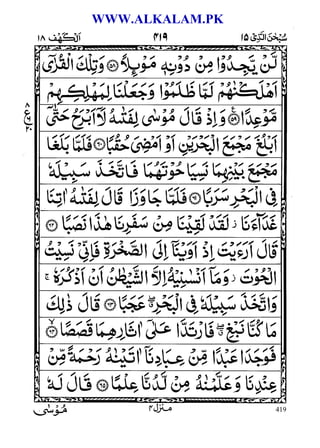 WWW.ALKALAM.PK
سُبْحٰنَ الَّذِیْۤ ۱۵
۴۱۹
اَلْكَهْف ۱۸
لَّنْ یَّجِدُوْا مِنْ دُوْنِهٖ مَوْىِٕلًا ۵۸ وَ تِلْكَ الْقُرٰۤى
اَهْلَكْنٰهُمْ لَمَّا ظَلَمُوْا وَ جَعَلْنَا لِمَهْلِكِهِمْ
مَّوْعِدًا ۵۹ وَ اِذْ قَالَ مُوْسٰى لِفَتٰىهُ لَاۤ اَبْرَحُ حَتّٰۤى
اَبْلُغَ مَجْمَعَ الْبَحْرَیْنِ اَوْ اَمْضِیَ حُقُبًا ۶۰ فَلَمَّا بَلَغَا
مَجْمَعَ بَیْنِهِمَا نَسِیَا حُوْتَهُمَا فَاتَّخَذَ سَبِیْلَهٗ
فِی الْبَحْرِ سَرَبًا ۶۱ فَلَمَّا جَاوَزَا قَالَ لِفَتٰىهُ اٰتِنَا
غَدَآءَنَا ؗ لَقَدْ لَقِیْنَا مِنْ سَفَرِنَا هٰذَا نَصَبًا ۶۲
قَالَ اَرَءَیْتَ اِذْ اَوَیْنَاۤ اِلَى الصَّخْرَةِ فَاِنِّیْ نَسِیْتُ
الْحُوْتَ ؗ وَ مَاۤ اَنْسٰىنِیْهُ اِلَّا الشَّیْطٰنُ اَنْ اَذْكُرَهٗ ۚ
وَ اتَّخَذَ سَبِیْلَهٗ فِی الْبَحْرِ ۖۗ عَجَبًا ۶۳ قَالَ ذٰلِكَ
مَا كُنَّا نَبْغِ ۖۗ فَارْتَدَّا عَلٰۤى اٰثَارِهِمَا قَصَصًا ۶۴
فَوَجَدَا عَبْدًا مِّنْ عِبَادِنَاۤ اٰتَیْنٰهُ رَحْمَةً مِّنْ
عِنْدِنَا وَ عَلَّمْنٰهُ مِنْ لَّدُنَّا عِلْمًا ۶۵ قَالَ لَهٗ
مُوْسٰى
منزل ۴
419